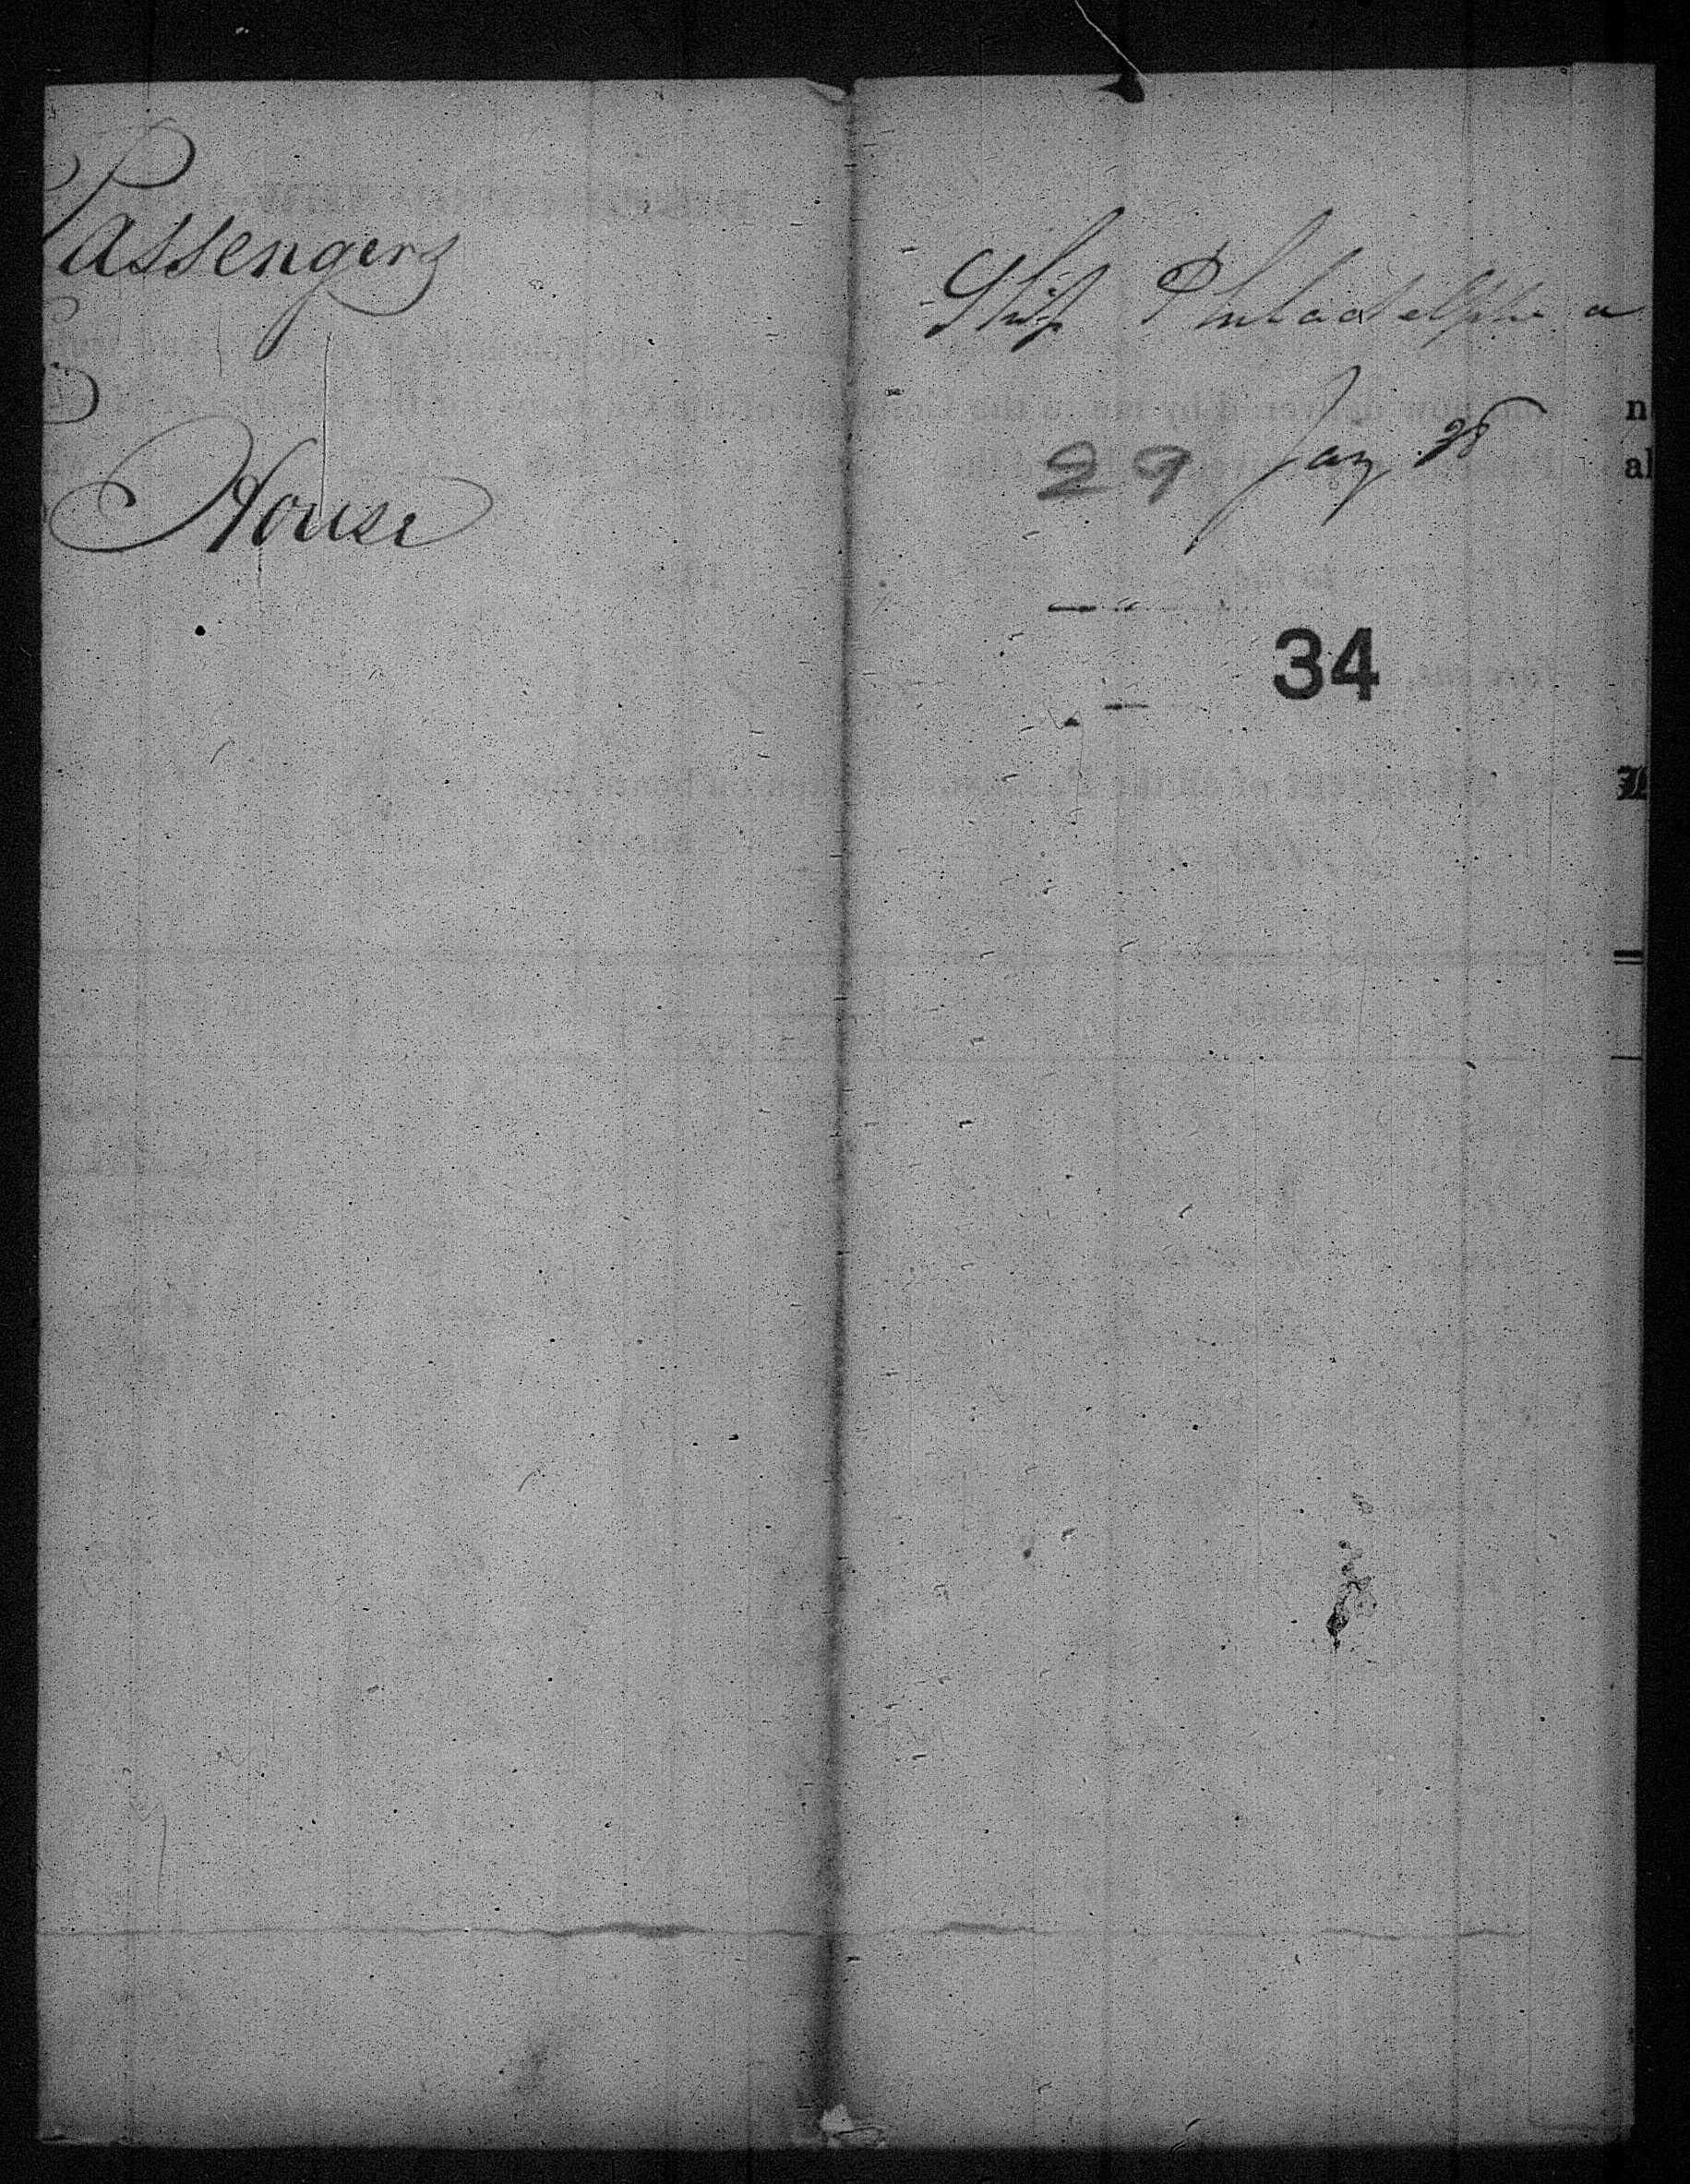 Passengers
House
Ship Philadelphia
29 Jany 28
34
n
al